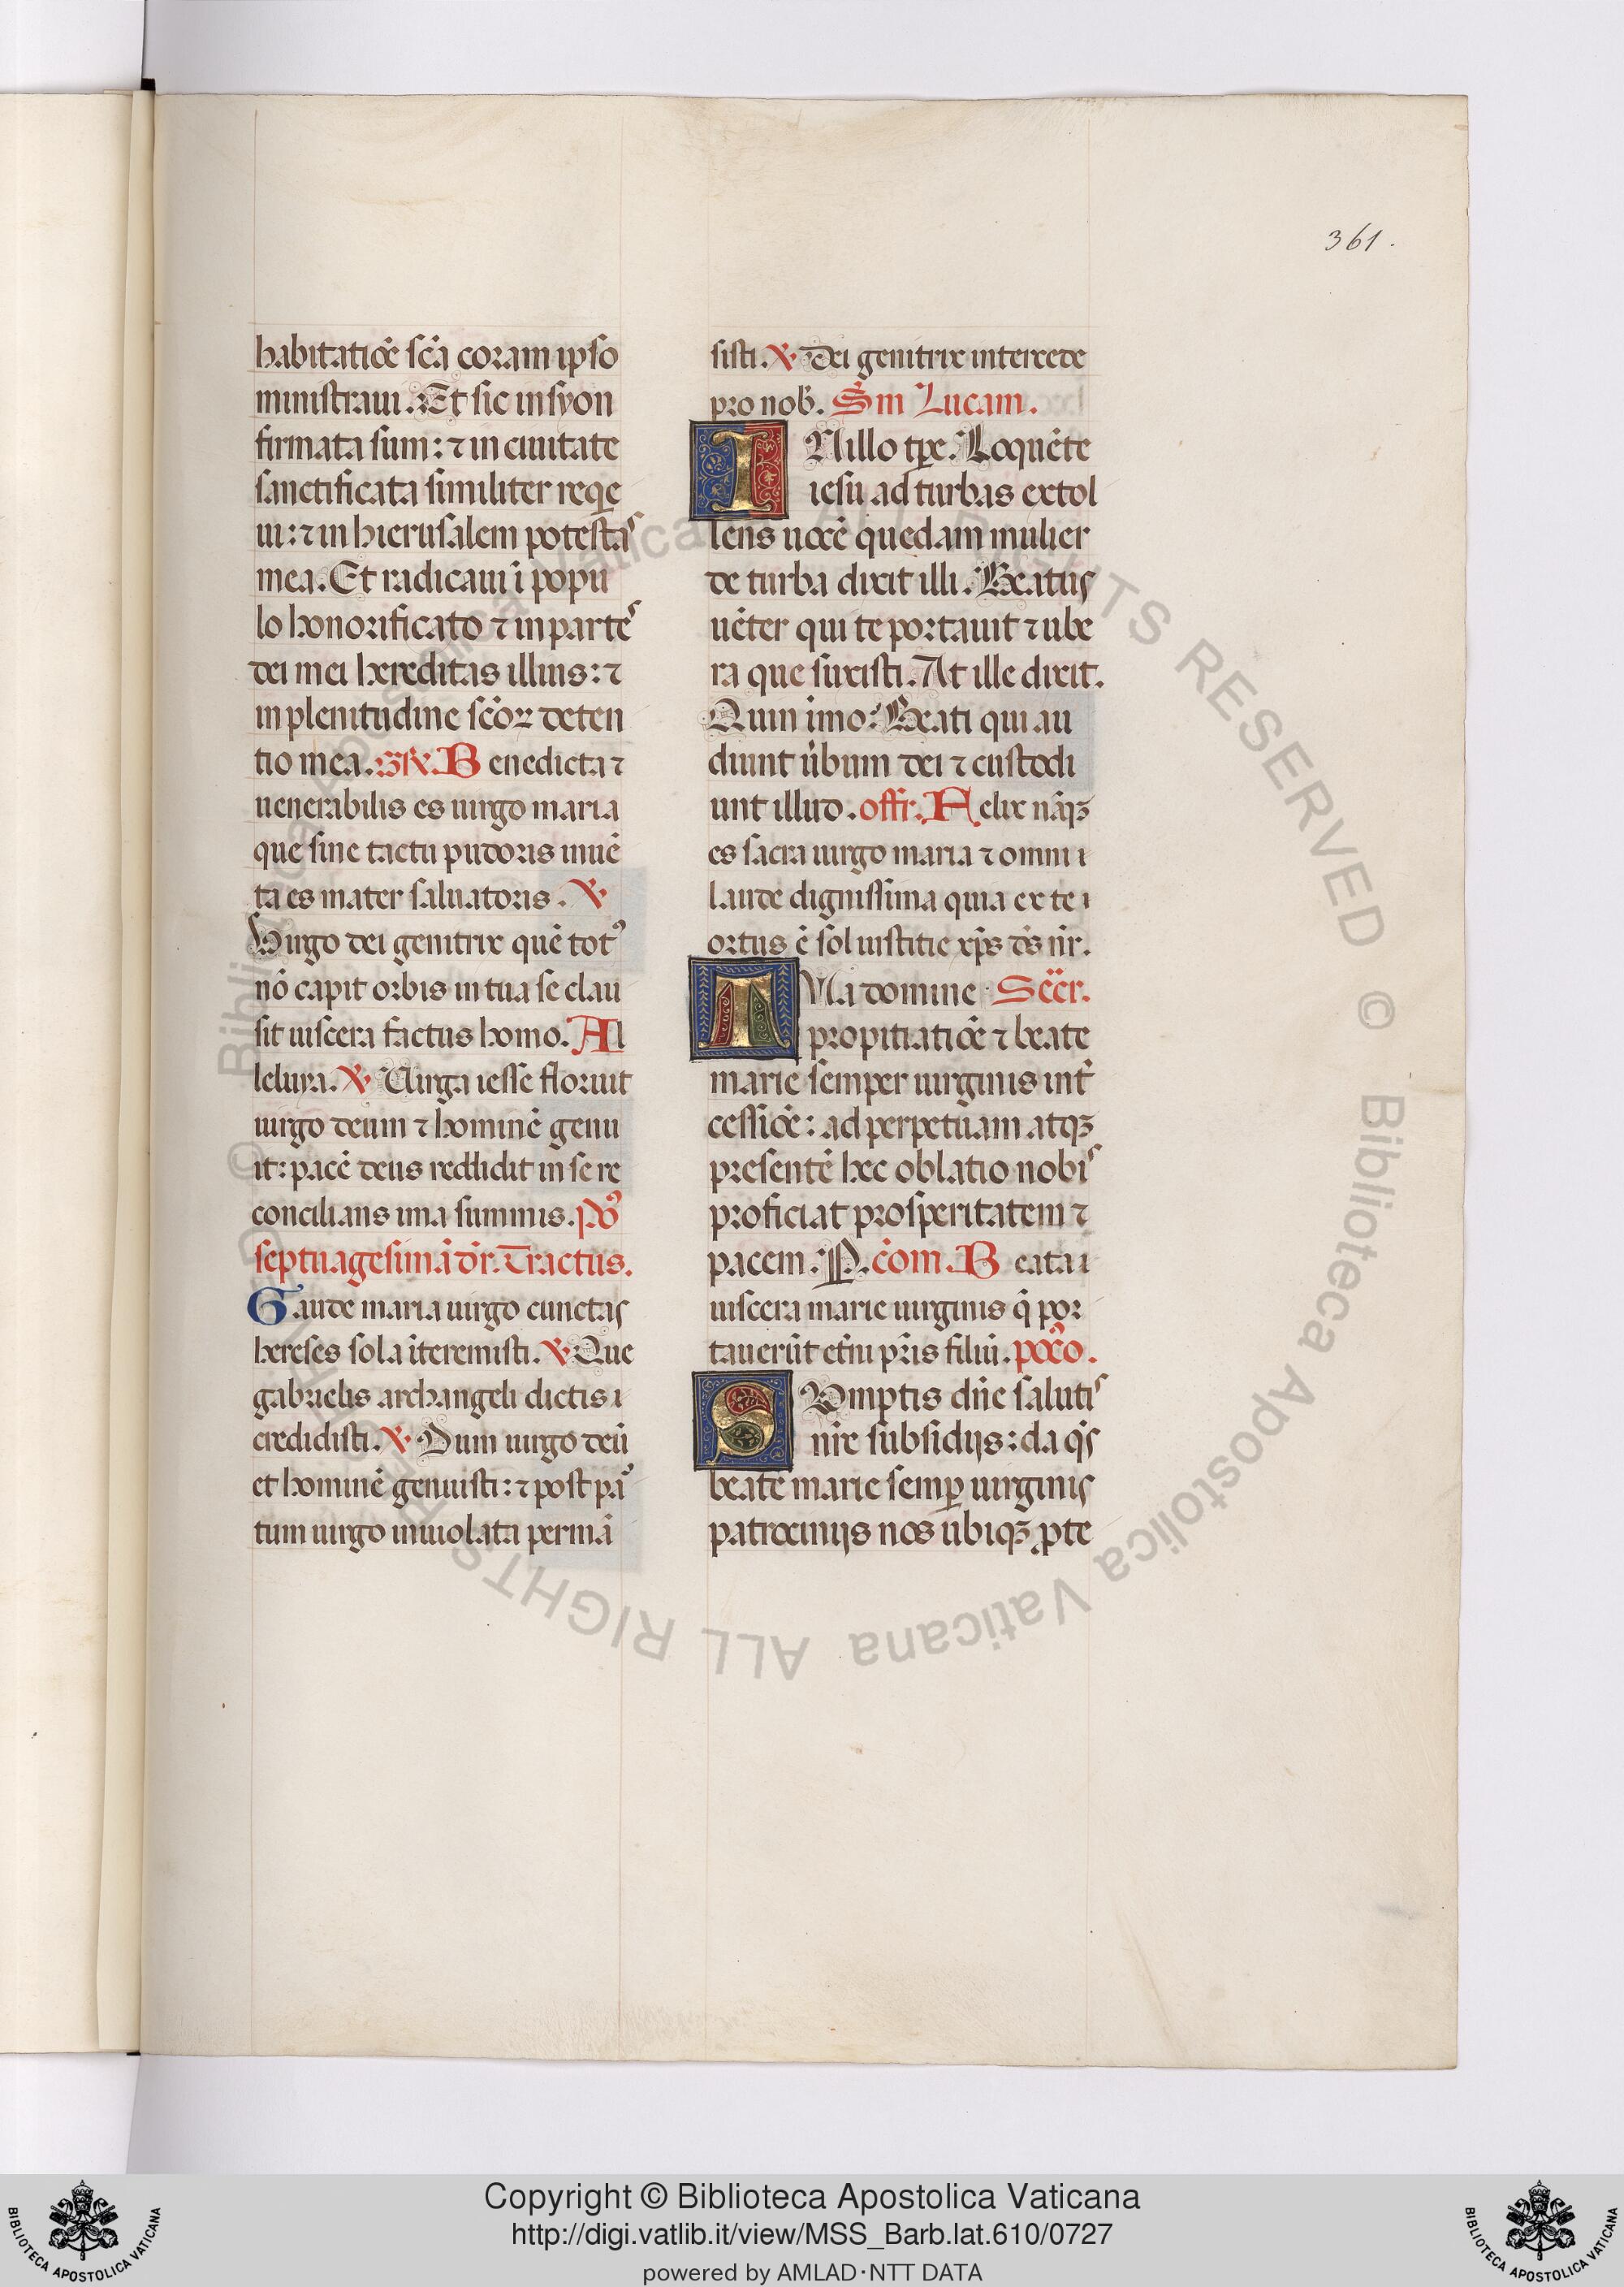 361.
habitatiōē sc̄a coram ipso
ministraui. Et sic in syon
firmata sum: ⁊ in ciuitate
sanctificata similiter reqͥe
ui: ⁊ in hierusalem potestas
mea. Et radicaui ī popu
lo honorificato ⁊ in partes
dei mei hereditas illius: ⁊
in plenitudine sc̄oꝝ deten
tio mea. Gͬ. Benedicta ⁊
uenerabilis es uirgo maria
que sine tactu pudoris inuē
ta es mater saluatoris. ℣
Virgo dei genitrix quē totꝰ
nō capit orbis in tua se clau
sit uiscera factus homo. Al
leluya. ℣ Uirga iesse floruit
uirgo deum ⁊ hominē genu
it: pacē deus reddidit in se re
concilians ima summis. Poꝰ
septuagesimā dr̄. Tractus.
Gaude maria uirgo cunctas
hereses sola īteremisti. ℣ Que
gabrielis archangeli dictis
credidisti. ℣ Dum uirgo deū
et hominē genuisti: ⁊ post pa
tum uirgo inuiolata permā
sisti. ℣ Dei genitrix intercede
pro nob̄. Sm̄ Lucam.
IN illo tꝑe. Loquēte
iesu ad turbas extol
lens uocē quedam mulier
de turba dixit illi. Beatus
uēter qui te portauit ⁊ ube
ra que suxisti. At ille dixit.
Quin imo: Beati qui au
diunt u̇bum dei ⁊ custodi
unt illud. offr. Felix nāqꝫ
es sacra uirgo maria ⁊ omni
laude dignissima quia ex te
ortus ē sol iustitie xp̄s ds̄ nr̄.
TUa domine Secr̄.
propitiatiōe ⁊ beate
marie semper uirginis int̄
cessiōe: ad perpetuam atqꝫ
presentē hec oblatio nobis
proficiat prosperitatem ⁊
pacem. P. com̄. Beata
uiscera marie uirginis q̄ por
tauerūt et̄ni pr̄is filiū. poc̄o.
SUmptis dn̄e salutis
nr̄e subsidijs: da qs̄
beate marie semꝑ uirginis
patrocinijs nos ubiqꝫ ꝓte
© Biblioteca Apostolica Vaticana ALL RIGHTS RESERVED © Biblioteca Apostolica Vaticana ALL RIGHTS RESERVED
Copyright © Biblioteca Apostolica Vaticana
http://digi.vatlib.it/view/MSS_Barb.lat.610/0727
powered by AMLAD·NTT DATA
BIBLIOTECA APOSTOLICA VATICANA
BIBLIOTECA APOSTOLICA VATICANA